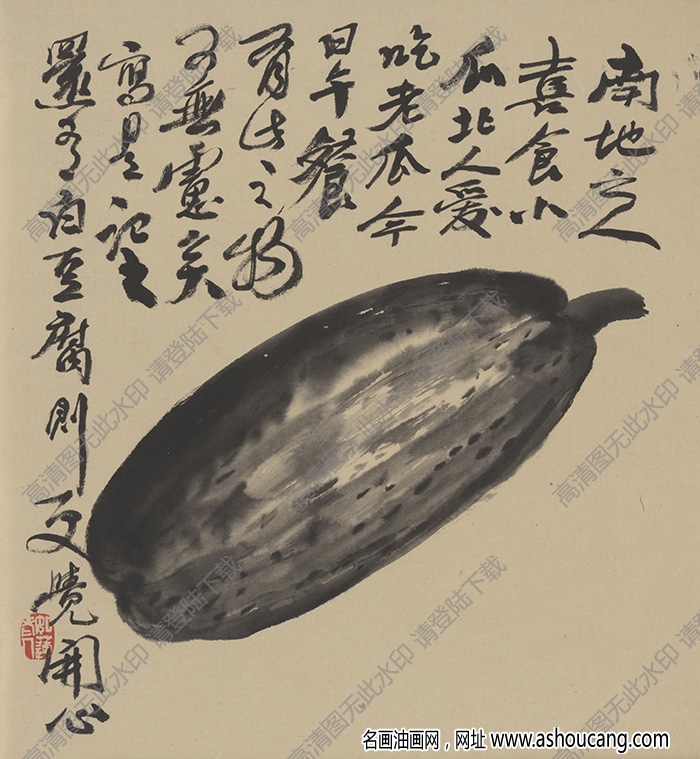 南地之人
喜食小
瓜北人爱
吃老瓜今
日午餐
有此之物
可無慮矣
寫是記之
還有白豆腐則更觉開心
高清图无此水印 请登陆下载
名画油画网，网址 www.ashoucang.com